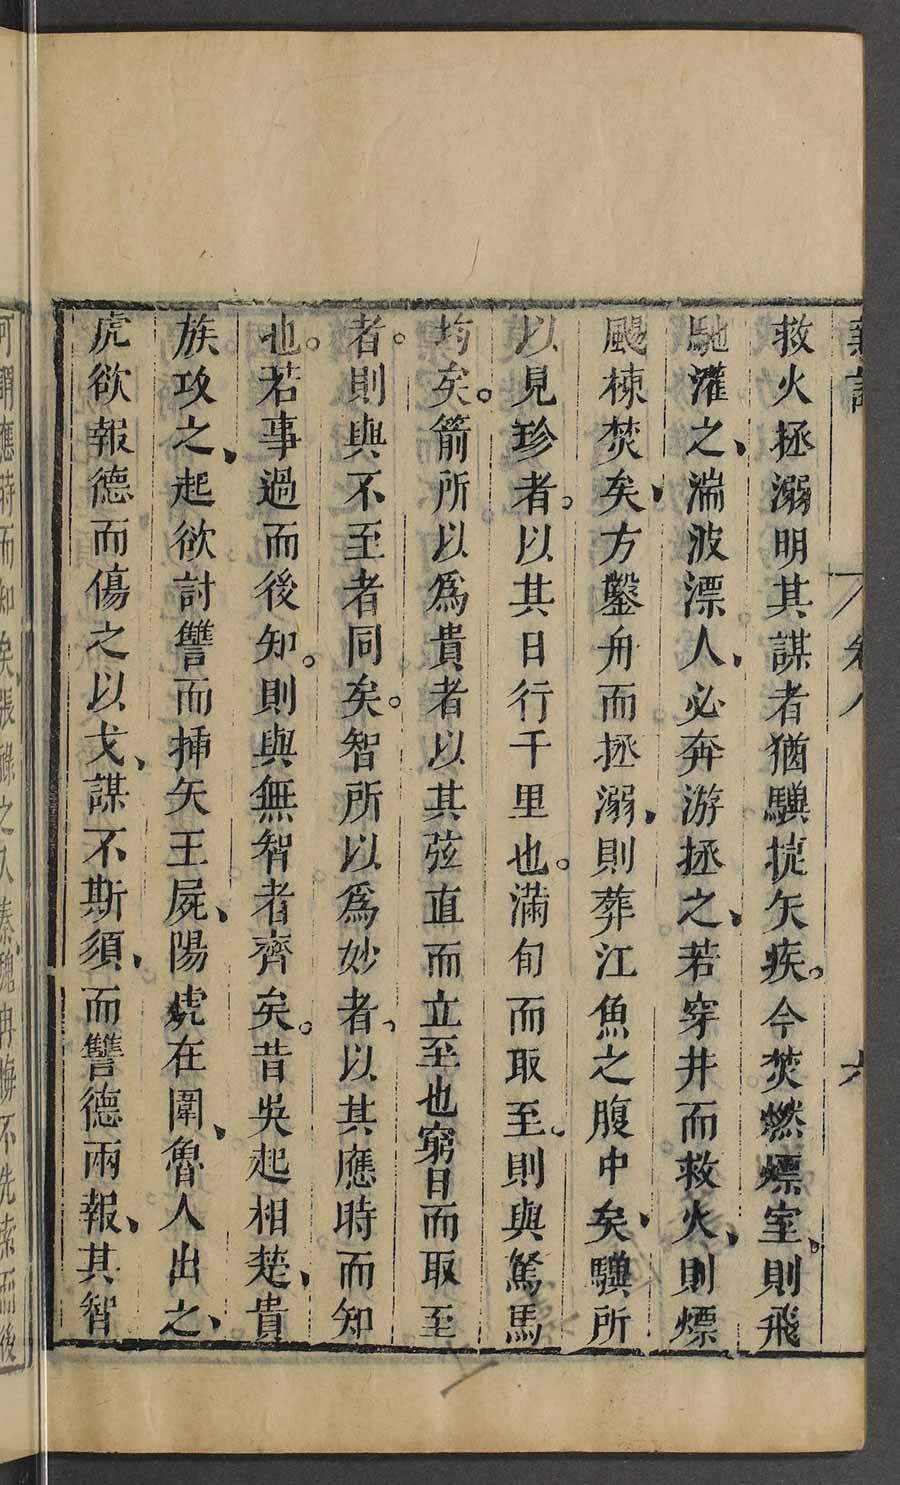 救火拯溺明其謀者猶驥捷矢疾。今焚燃熛室、則飛
馳灌之、湍波漂人、必奔游拯之、若穿井而救火、則熛
颺棟焚矣、方鑿舟而拯溺、則葬江魚之腹中矣、驥所
以見珍者。以其日行千里也。滿旬而取至、則與駑馬
均矣。箭所以爲貴者以其弦直而立至也窮日而取至
者。則與不至者同矣。智所以爲妙者、以其應時而知
也。若事過而後知。則與無智者齊矣。昔吳起相楚、貴
族攻之、起欲討讐而揷矢王屍、陽虎在圍、魯人出之、
虎欲報德而傷之以戈、謀不斯須、而讐德兩報、其智
可謂應時而知矣張祿之入秦魏冉悔不先索而後